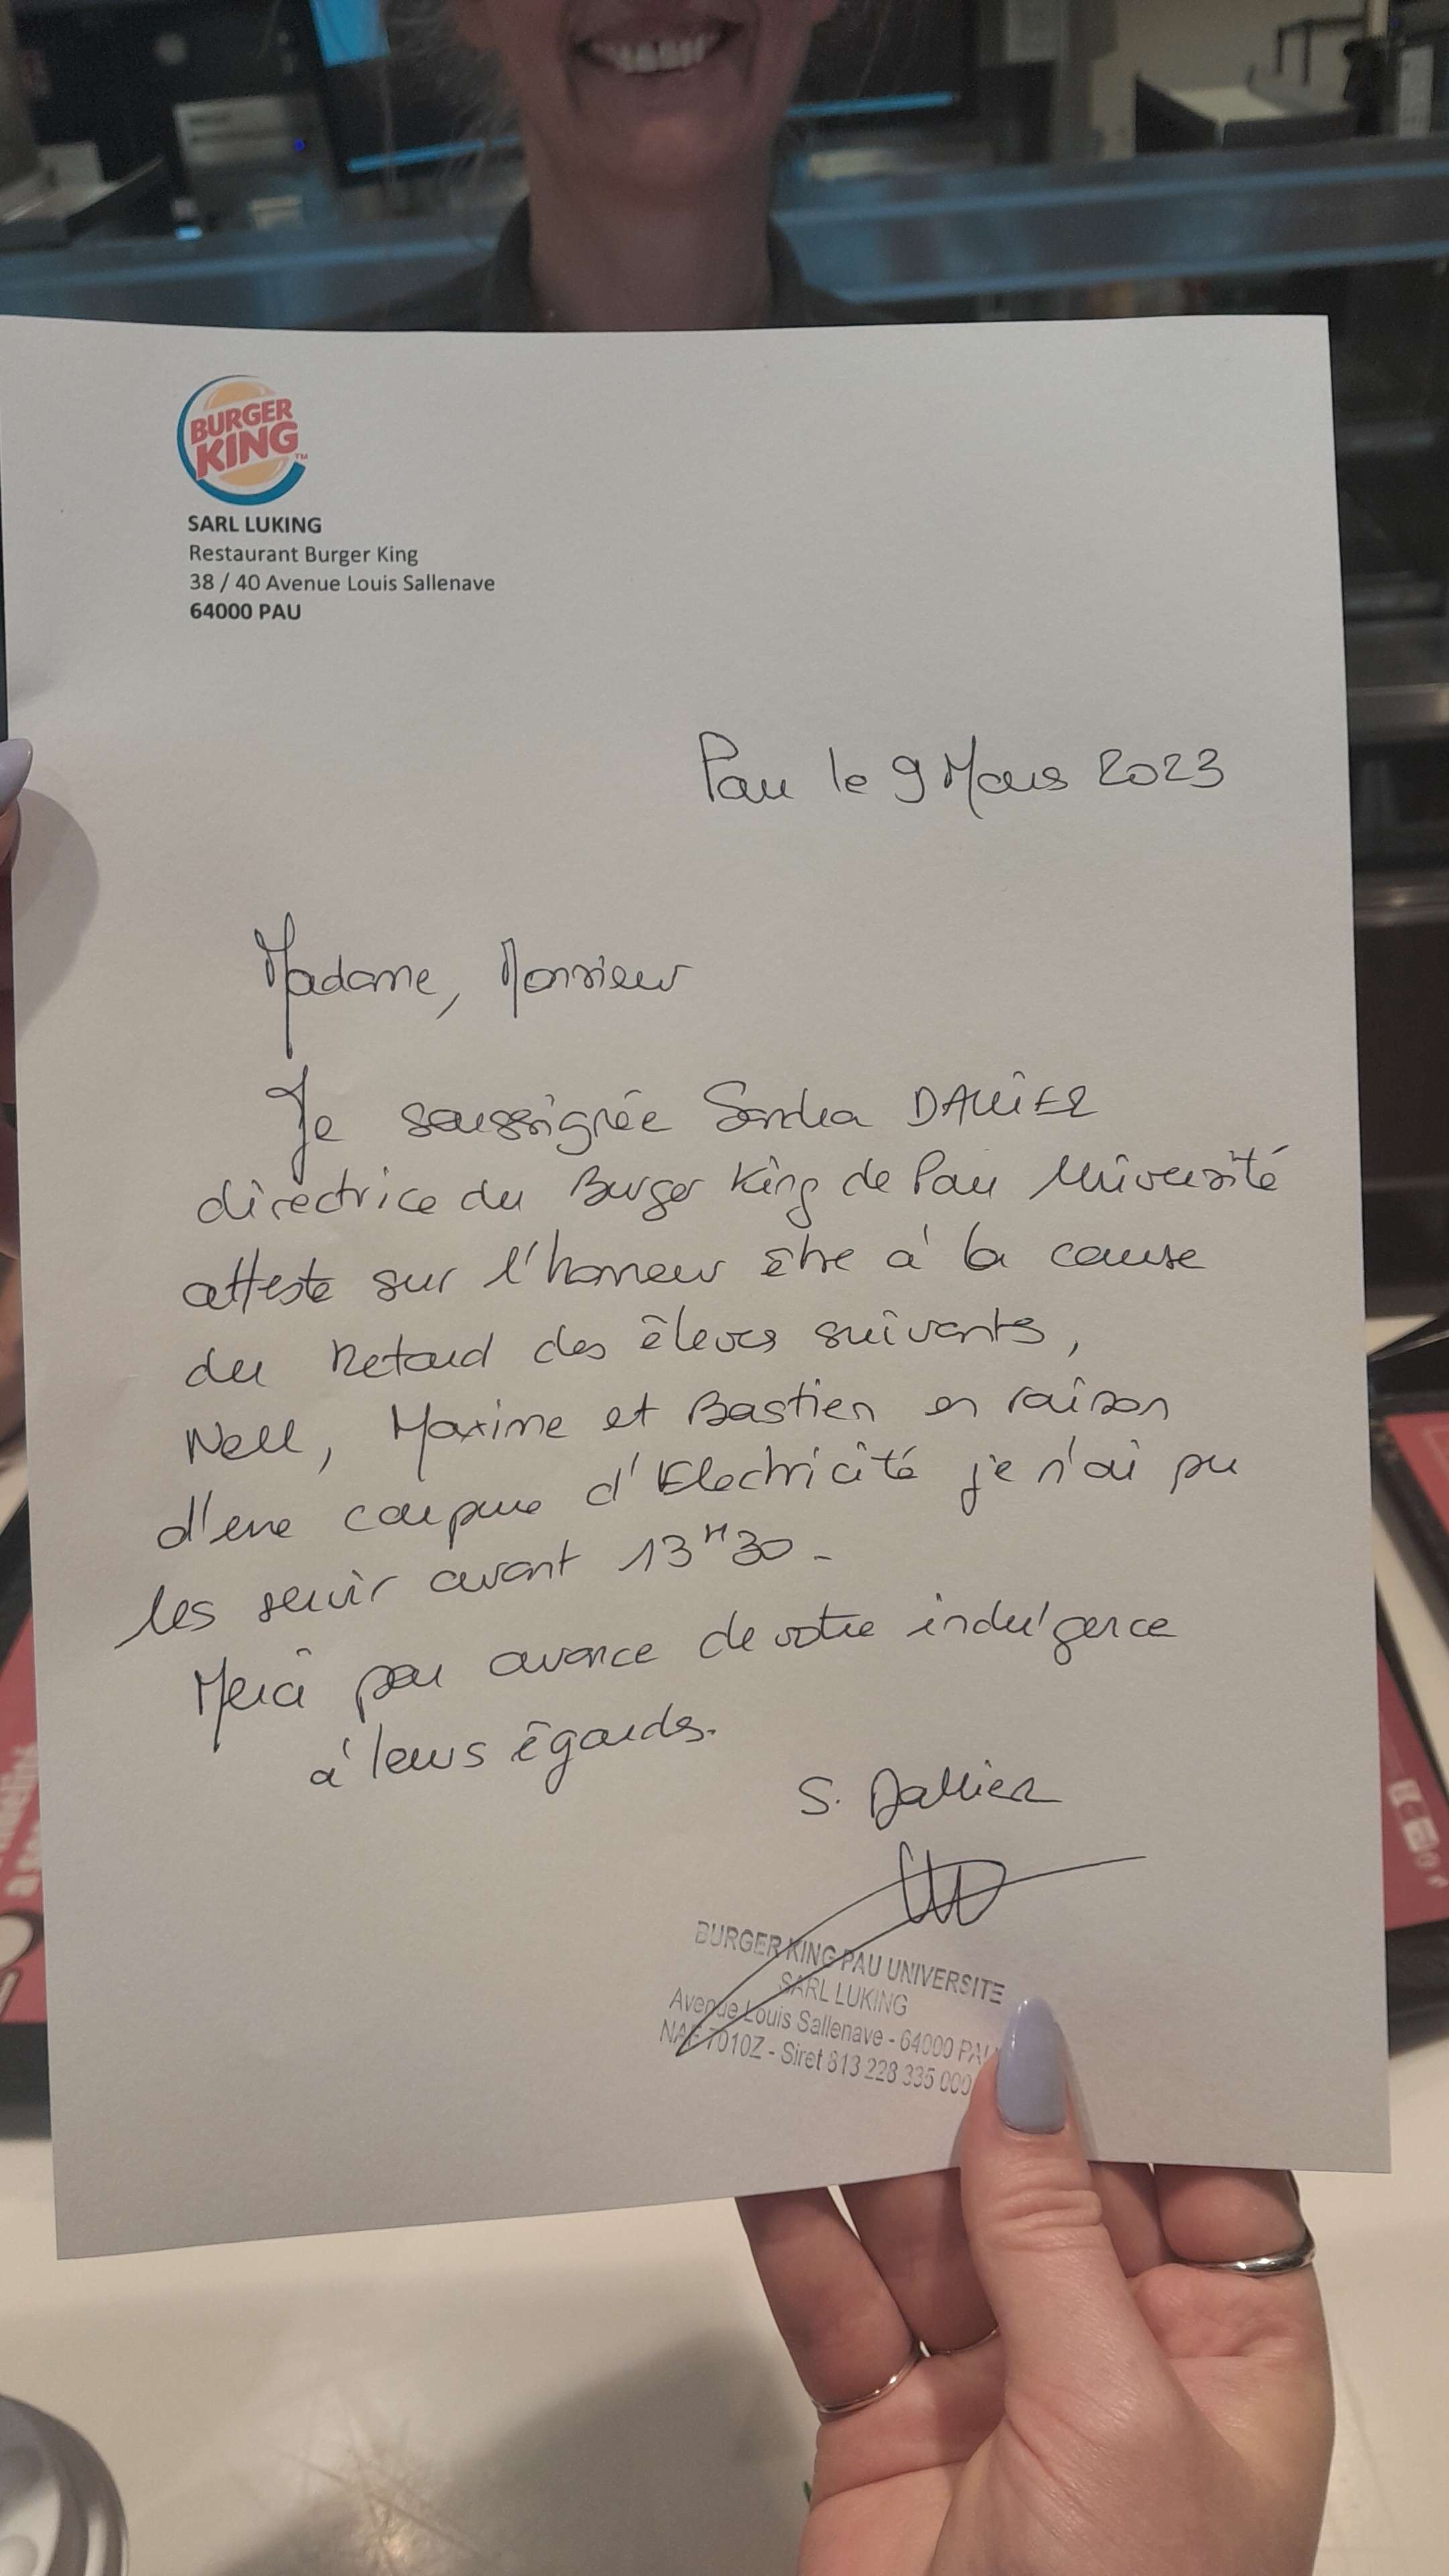 BURGER
KING™
SARL LUKING
Restaurant Burger King
38 / 40 Avenue Louis Sallenave
64000 PAU
Pau le 9 Mars 2023
Madame, Monsieur
Je soussignée Sandra DALLIER
directrice du Burger King de Pau Université
atteste sur l'honneur être à la cause
du Retard des élèves suivants,
Nell, Maxime et Bastien en raison
d'une coupure d'Electricité je n'ai pu
les servir avant 13H30.
Merci par avance de votre indulgence
à leurs égards.
S. Dallier
BURGER KING PAU UNIVERSITE
SARL LUKING
Avenue Louis Sallenave - 64000 PAU
NAF 7010Z - Siret 813 228 335 000